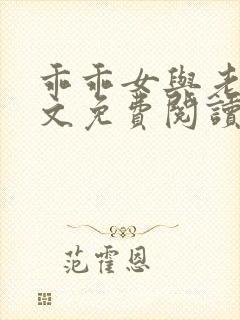 乖乖女與老
文免費閱讀
范霍恩